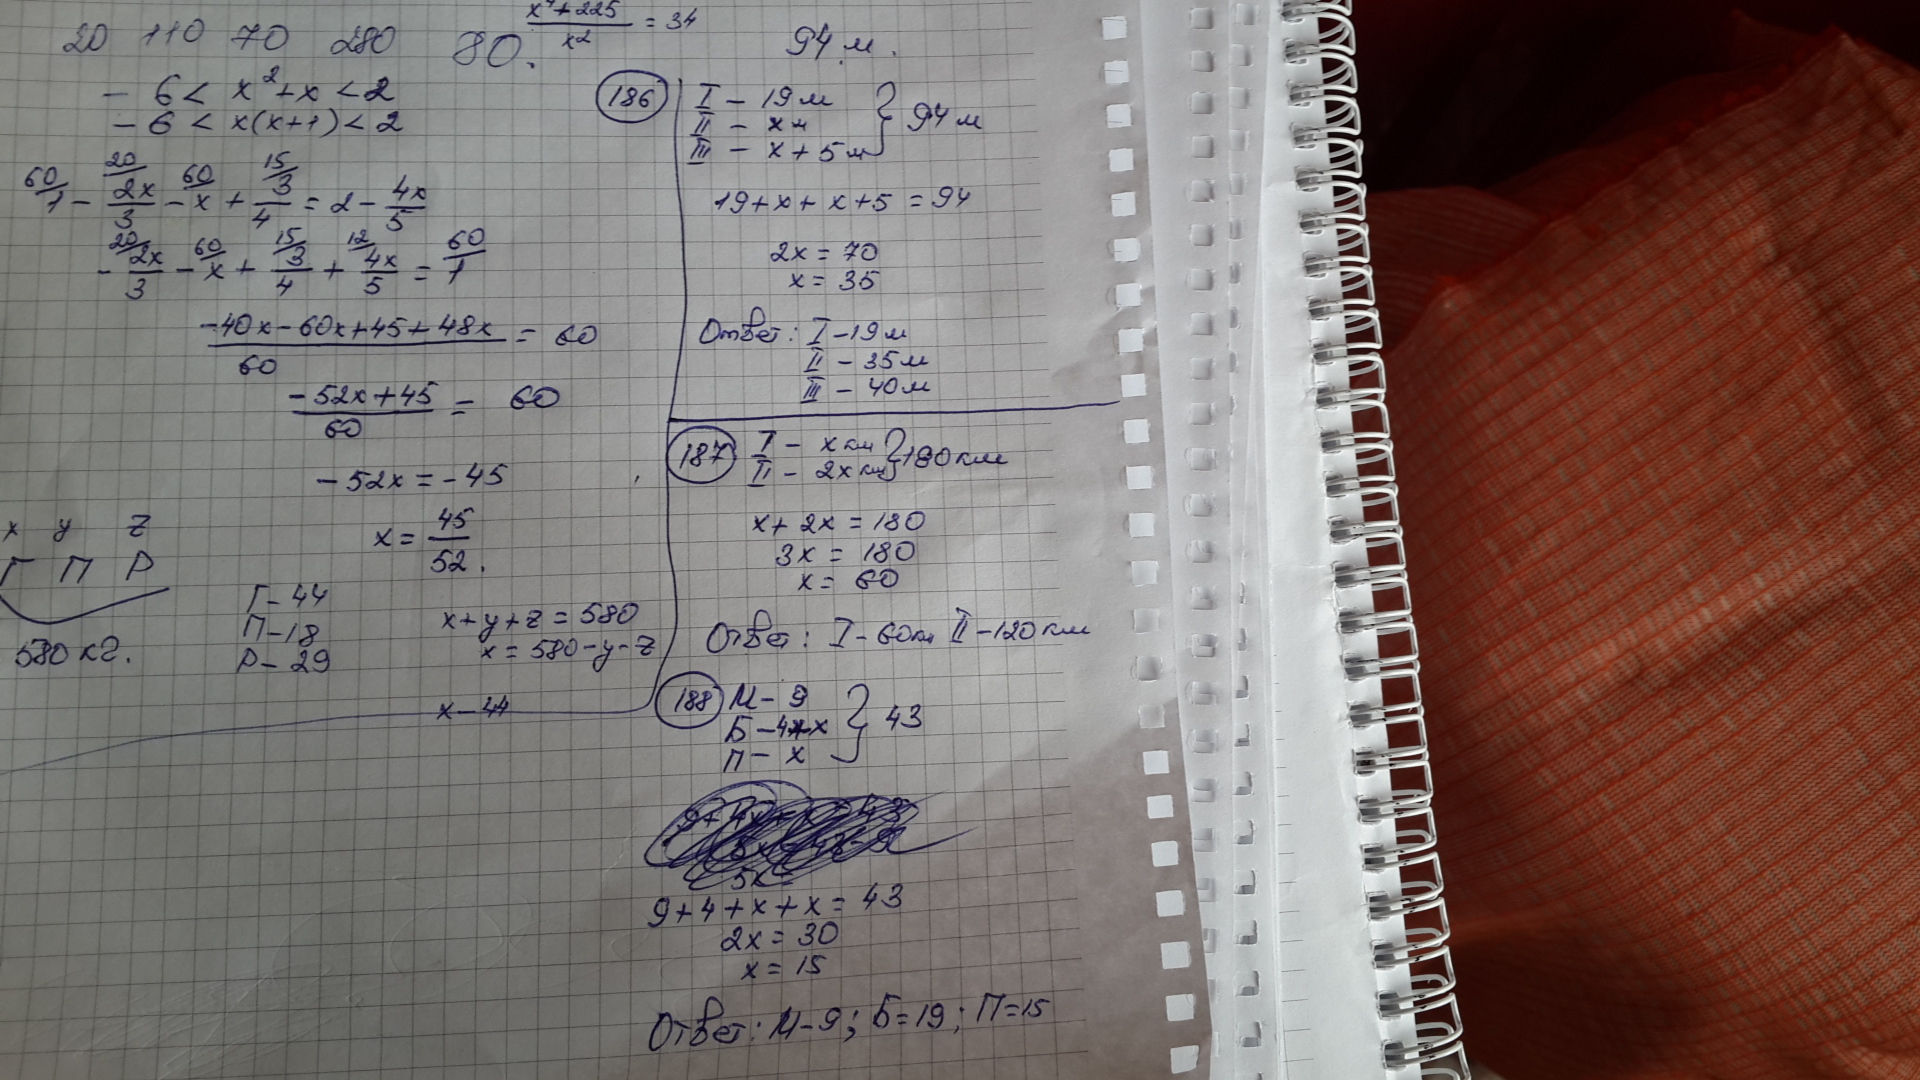 20 110 70 280 80.
x⁴+225/x² = 34
94 м.
- 6 < x²+x < 2
- 6 < x(x+1) < 2
60/1 - 20/2x/3 - 60/x + 15/3/4 = 2 - 4x/5
- 20/2x/3 - 60/x + 15/3/4 + 12/4x/5 = 60/1
-40x-60x+45+48x/60 = 60
-52x+45/60 = 60
-52x = -45
x = 45/52.
x y z
Г П Р
580 кг.
Г-44
П-18
Р-29
x+y+z = 580
x = 580-y-z
x-44
186
I - 19 м
II - x м
III - x + 5 м
} 94 м
19+x+x+5 = 94
2x = 70
x = 35
Ответ: I - 19 м
II - 35 м
III - 40 м
187
I - x км
II - 2x км
} 180 км
x + 2x = 180
3x = 180
x = 60
Ответ: I - 60км II - 120 км
188
М - 9
Б - 4+x
П - x
} 43
9+4+x+x = 43
2x = 30
x = 15
Ответ: М-9; Б=19; П=15